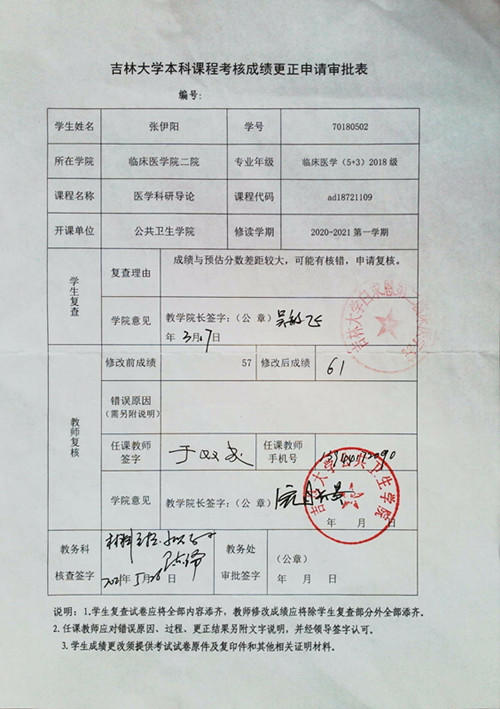 吉林大学本科课程考核成绩更正申请审批表
编号:
学生姓名 张伊阳 学号 70180502
所在学院 临床医学院二院 专业年级 临床医学(5+3)2018 级
课程名称 医学科研导论 课程代码 ad18721109
开课单位 公共卫生学院 修读学期 2020-2021 第一学期
学生复查 复查理由 成绩与预估分数差距较大，可能有核错，申请复核。
学院意见 教学院长签字:(公 章)
年 3月7日
教师复核 修改前成绩 57 修改后成绩 61
错误原因
(需另附说明)
任课教师
签字
任课教师
手机号
学院意见 教学院长签字:(公 章)
年 月 日
吉林大学公共卫生学院
教务科
核查签字
2021年5月28日
教务处
审批签字
(公章)
年 月 日
说明：1.学生复查试卷应将全部内容添齐，教师修改成绩应将除学生复查部分外全部添齐。
2.任课教师应对错误原因、过程、更正结果另附文字说明，并经领导签字认可。
3.学生成绩更改须提供考试试卷原件及复印件和其他相关证明材料。